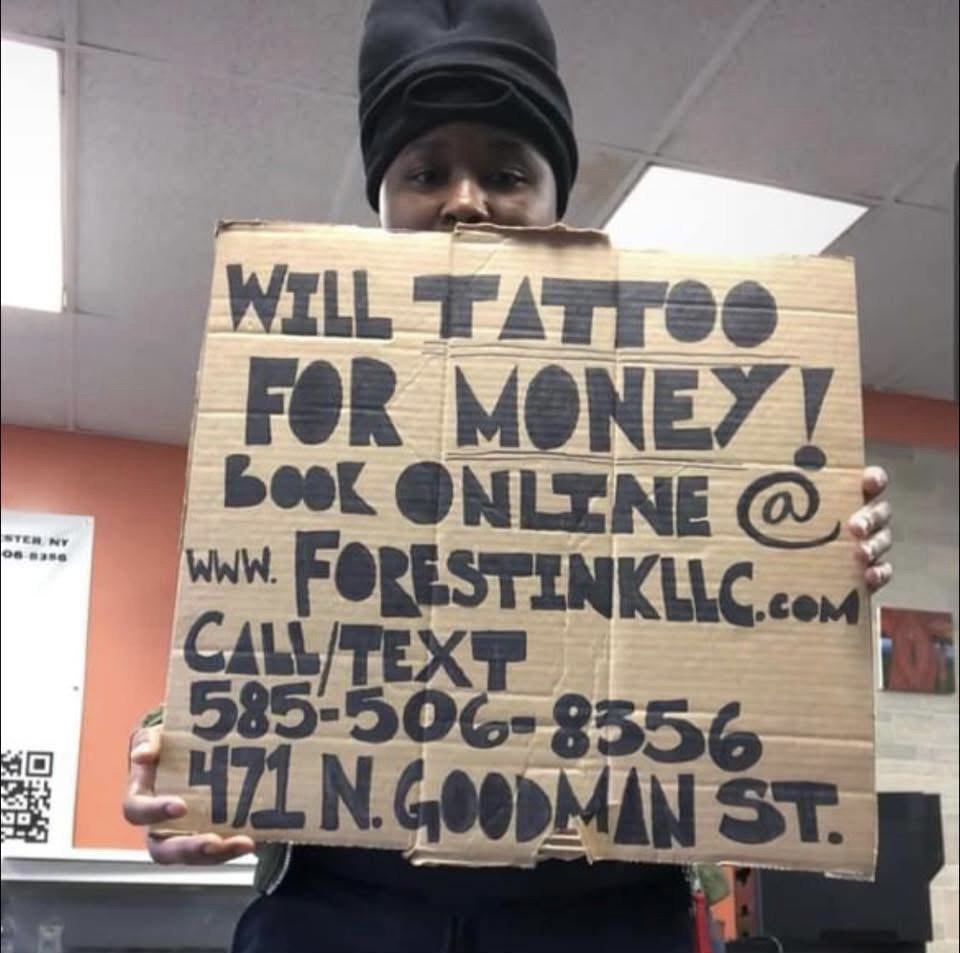 WILL TATTOO
FOR MONEY!
BOOK ONLINE @
www.FORESTINKLLC.com
CALL/TEXT
585-506-8356
471 N. GOODMAN ST.
NY